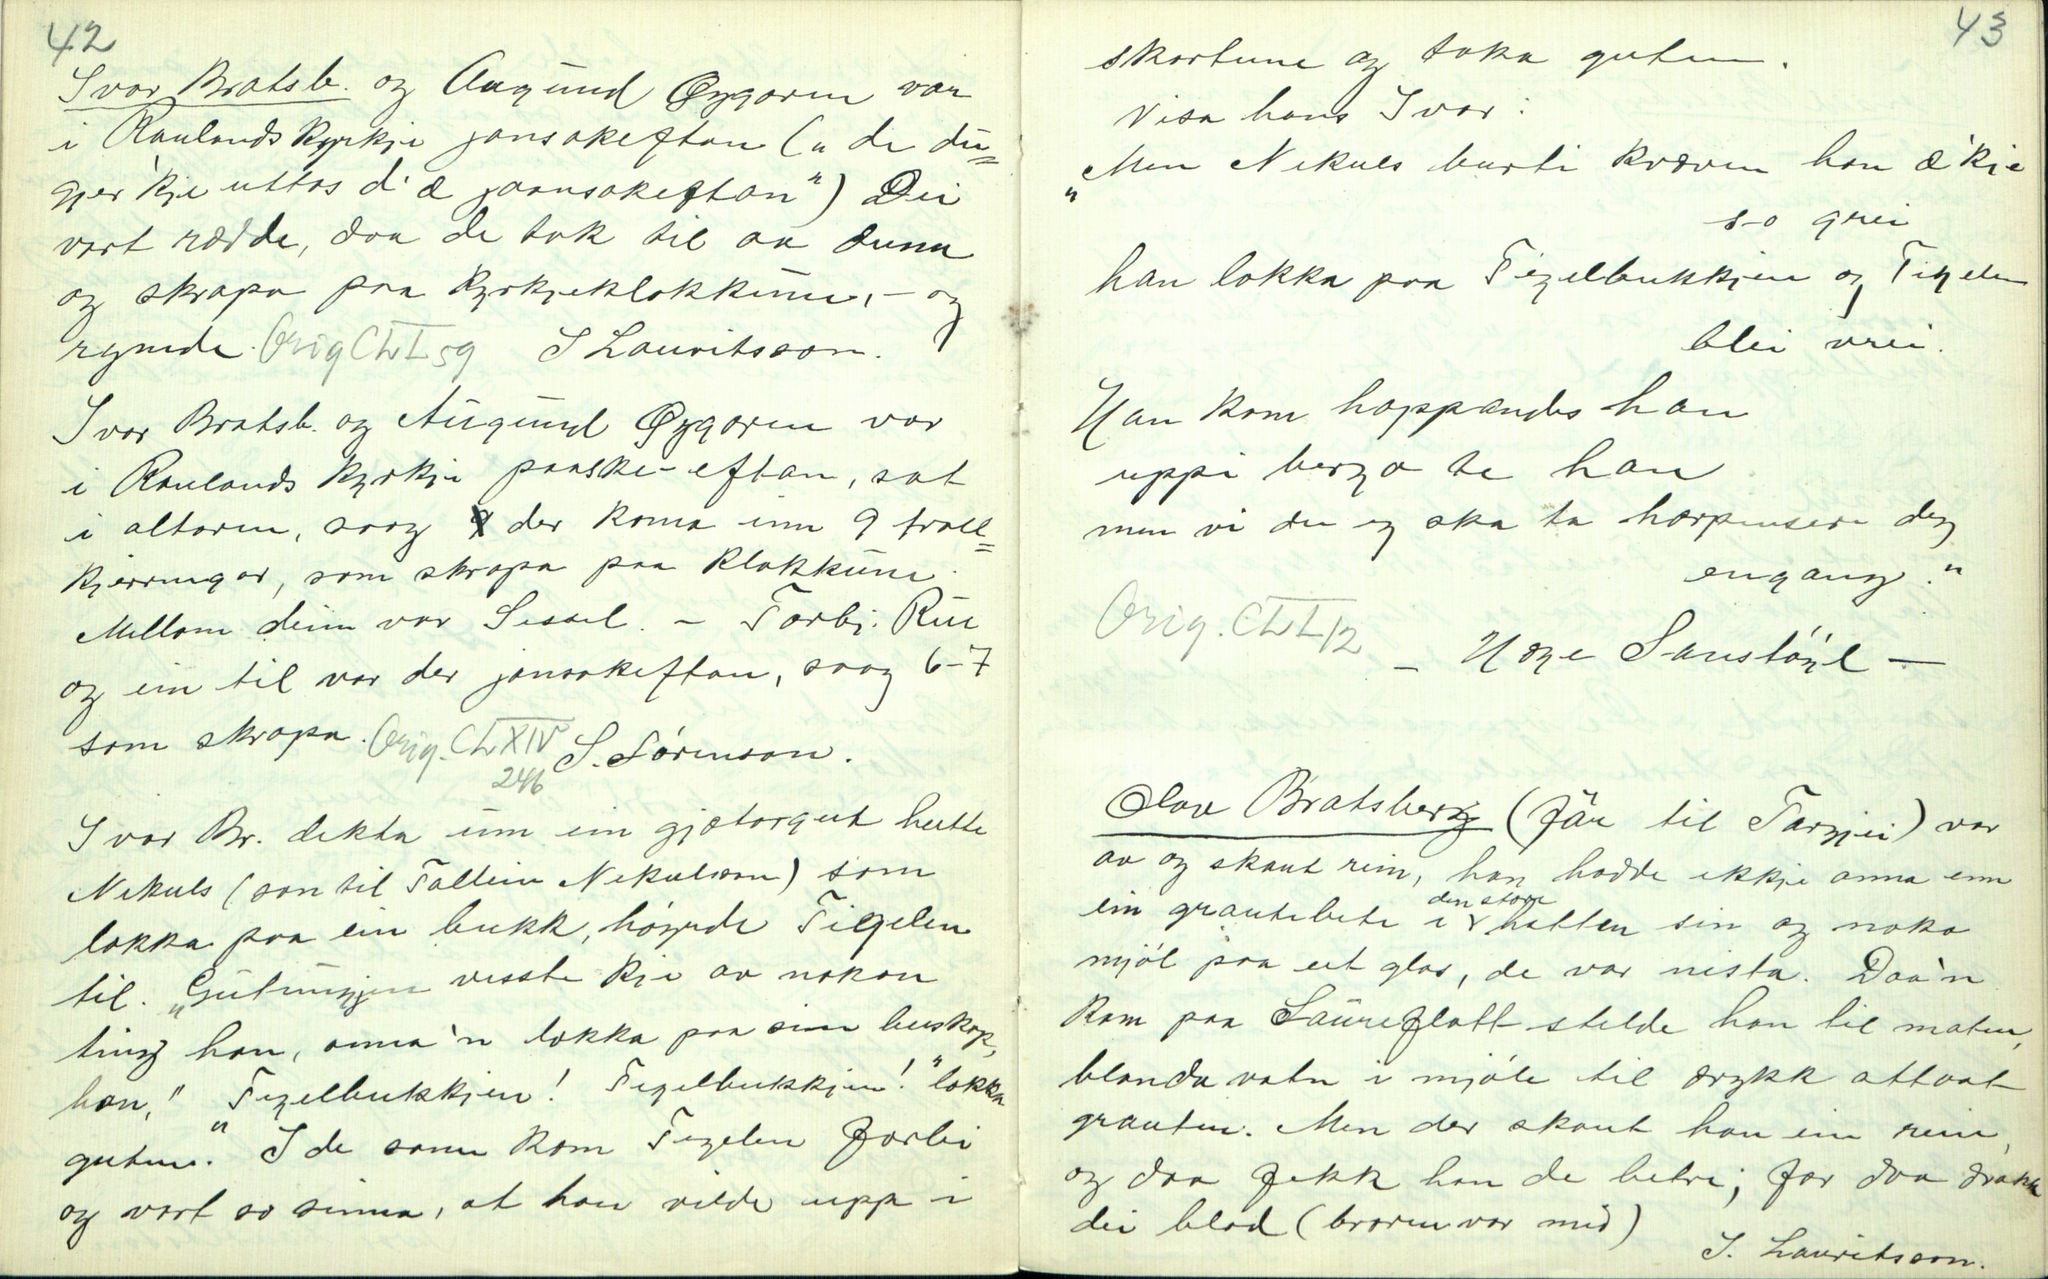 42
Ivar Bratsb. og Augund Øygaren var
i Raulandskyrkje jonsokeftan („de du=
gjer 'kje uttos d'æ jaansokeftan") Dei
vart rædde, daa de tok til aa duna
og skrapa paa kyrkjeklokkune, – og
rymde. Orig CLI 59 S Lauritsson.
Ivar Bratsb. og Augund Øygaren var
i Raulands kyrkje paaske-eftan, sat
i altaren, saag der koma inn 9 troll=
kjerringar, som skrapa paa klokkune.
Millom deim var Sissel. – Torbj. Rui
og ein til var der jonsokeftan, saag 6–7
som skrapa. Orig. CLXIV 246 S. Sørenson.
Ivar Br. dikta um ein gjætargut heitte
Nikuls (son til Tallein Nikulson) som
lokka paa ein bukk, høyrde Tigelen
til. „Gutungjen visste kje av nokon
ting han, anna'n lokka paa sin buskap,
han," „Tegelbukkjen! Tegelbukkjen!" lokka
guten. I de same kom Tegelen forbi
og vart so sinna, at han vilde upp i
43
skortune og taka guten.
Visa hans Ivar:
„Men Nekuls burti kvæven han æ'kje
so grei
han lokka paa Tegelbukkjen og Tigelen
blei vrei.
Han kom hoppandes han
uppi berga te han
men vi du eg ska ta harpensere deg
engang."
Orig. CLI 12
– Høge Sanstøyl –
Olav Bratsberg (får til Targjei) var
av og skaut rein, han hadde ikkje anna enn
ein grautebete i den store hatten sin og noko
mjøl paa eit glas, de var nista. Daa'n
kom paa Saureflott stelde han til maten,
blanda vatn i mjøle til drykk attaat
grauten. Men der skaut han ein rein,
og daa fekk han de betre; for daa drakk
dei blod (broren var mid)
S. Lauritsson.